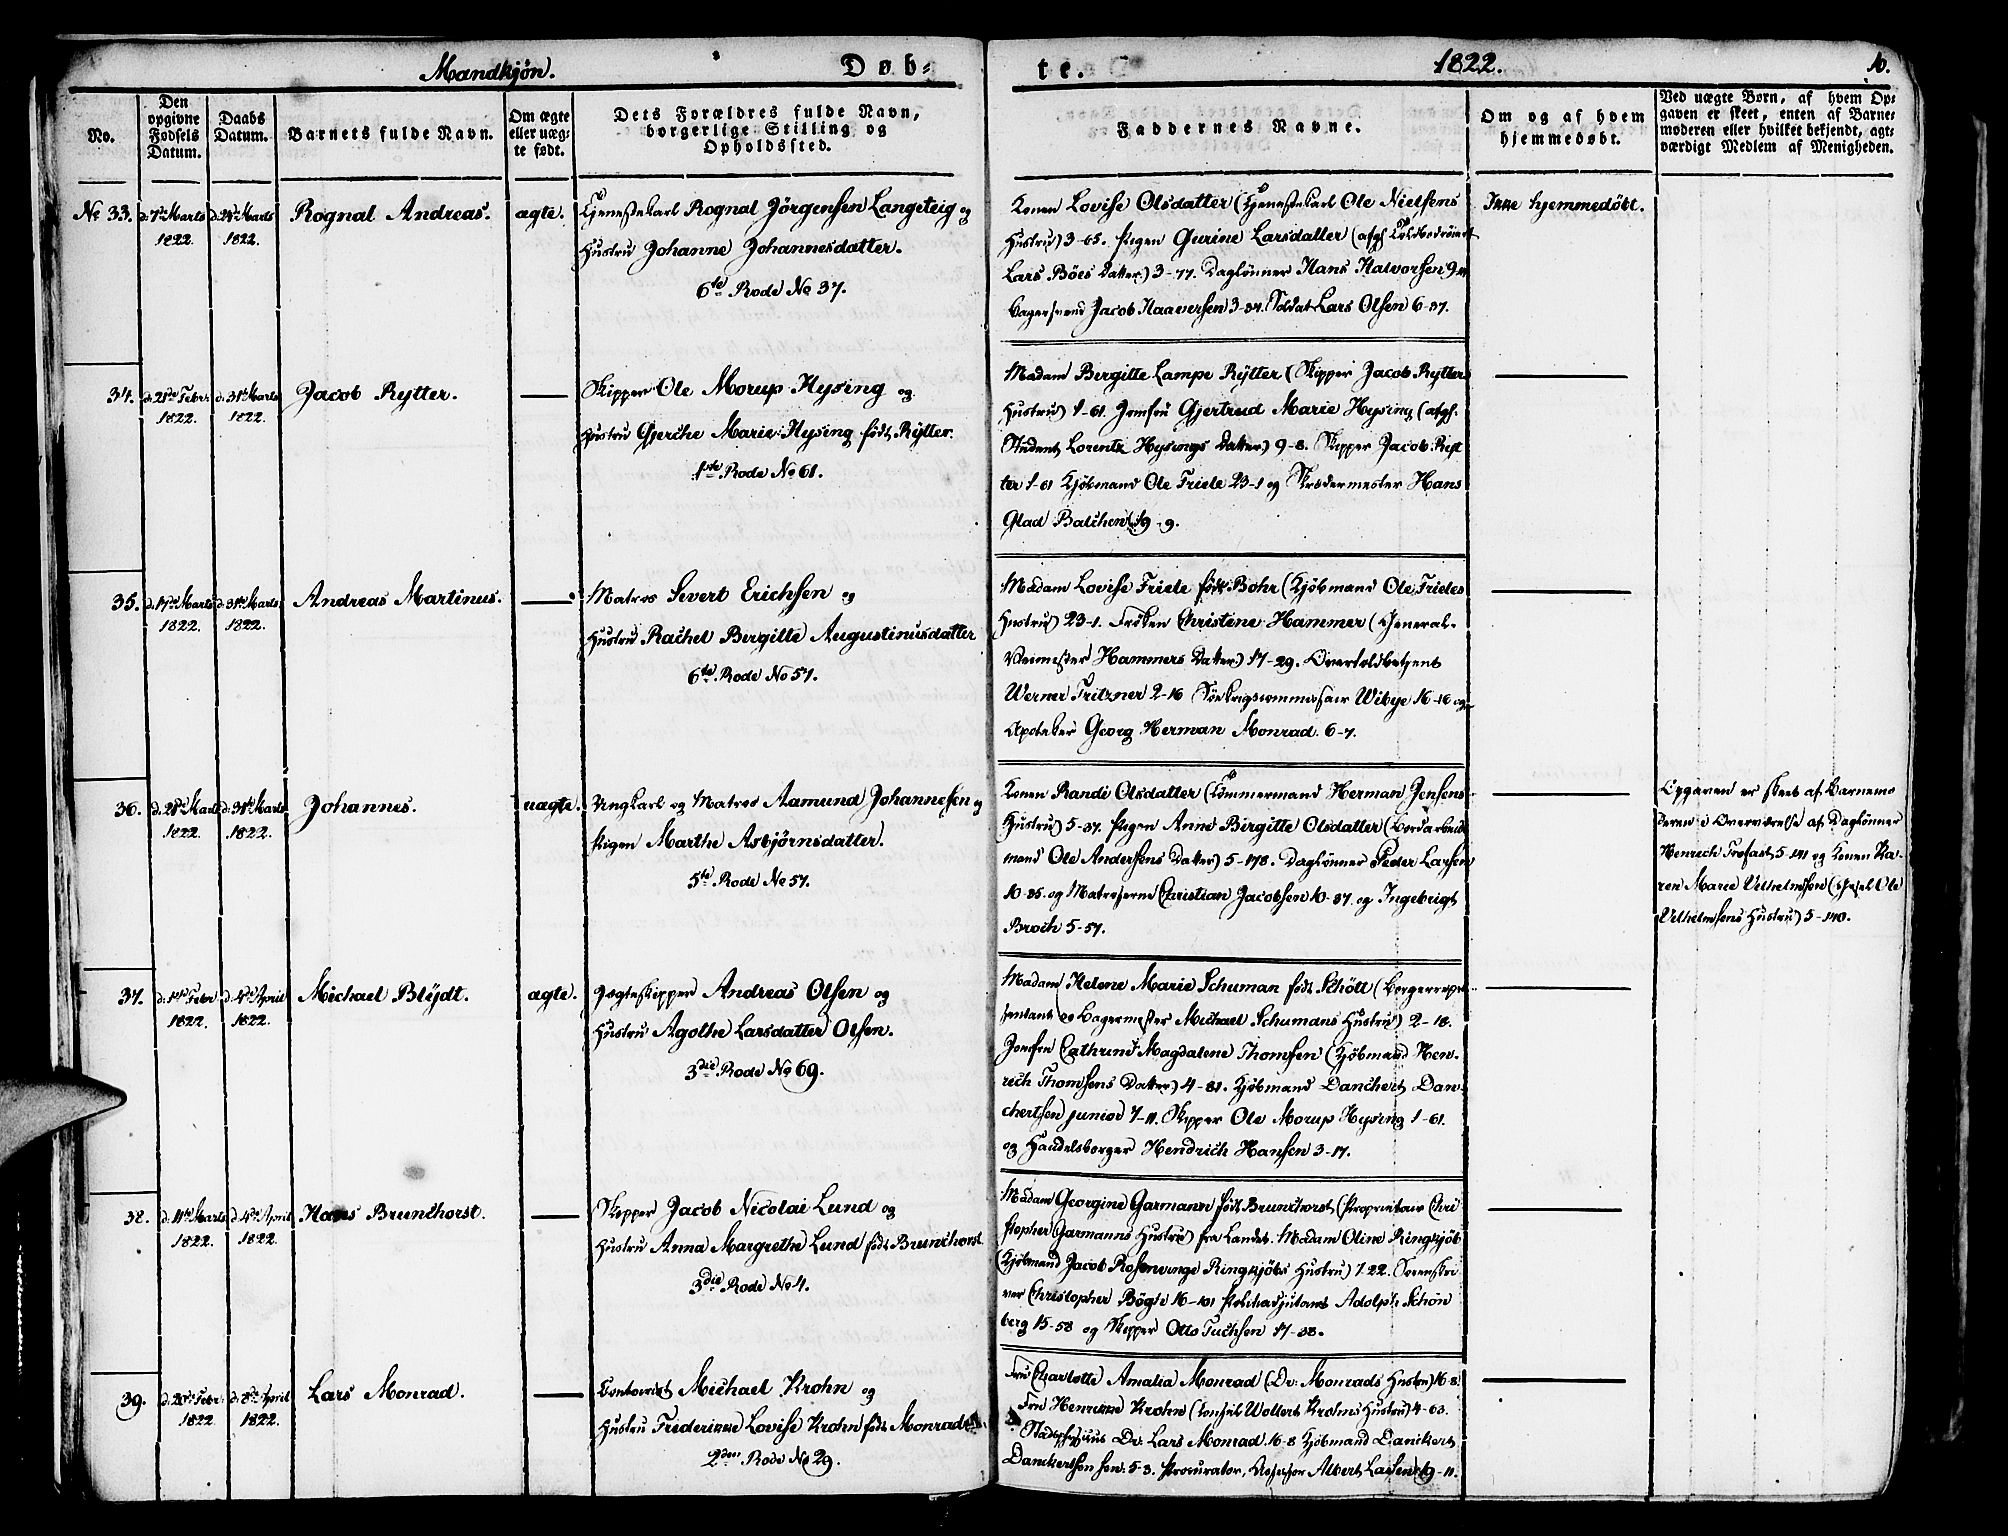 Mandkjøn.
Døb-
te.
1822.
10.
No.
Den opgivne Fødsels Datum.
Daabs Datum.
Barnets fulde Navn.
Om ægte eller uæg-
te født.
Dets Forældres fulde Navn,
borgerlige Stilling og
Opholdssted.
Faddernes Navne.
Om og af hvem
hjemmedøbt.
Ved uægte Børn, af hvem Op-
gaven er skeet, enten af Barne-
moderen eller hvilket bekjendt, agt-
værdigt Medlem af Menigheden.
No 33.
d. 7de Marts
1822.
d. 24de Marts
1822.
Rognal Andreas.
ægte.
Tjenestekarl Rognal Jörgensen Langeteig og
Hustru Johanne Johannesdatter.
6te Rode No 37.
Konen Lovise Olsdatter (Tjenestekarl Ole Nielsens
Hustru) 3-65. Pigen Gurine Larsdatter (afg:
Lars Böes Datter) 3-77. Daglönner Hans Halvorsen
Bagersvend Jacob Haaversen 3-34. Soldat Lars Olsen 6-37.
Ikke hjemmedöbt.
34.
d. 21de Febr.
1822.
d. 31te Marts
1822.
Jacob Rytter.
Skipper Ole Morup Hysing og
Hustru Gjerche Marie Hysing födt Rytter.
1ste Rode No 61.
Madam Bergitte Lampe Rÿtter (Skipper Jacob Rytters
Hustru) 1-61. Jomfru Gjertrud Marie Hysing (afg:
Student Lorentz Hysings Datter) 9-8. Skipper Jacob Ryt
ter 1-61 Kjöbmand Ole Friele 23-1 og Skrædermester Hans
Glad Balchen 19-9.
35.
d. 17de Marts
1822.
d. 31te Marts
1822.
Andreas Martinus.
Matros Severt Erichsen og
Hustru Rachel Bergitte Augustinusdatter
6te Rode No 57.
Madam Lovise Friele födt Bohr (Kjöbmand Ole Frieles
Hustru) 23-1. Fröken Christine Hammer (General-
Veimester Hammers Datter) 17-29. Overtoldbetjent
Werner Fritzner 2-16 Söekrigscommissair Wibye 16-16 og
Apoteker Georg Herman Monrad. 6-7.
36.
d. 21de Marts
1822.
d. 31te Marts
1822.
Johannes.
uægte.
Ungkarl og Matros Aamund Johannesen og
Pigen Marthe Asbjörnsdatter.
5te Rode No 57.
Konen Rande Olsdatter (Tömmermand Herman Jensens
Hustru) 5-37. Pigen Anne Birgitte Olsdatter (Bordarbeids
mand Ole Andersens Datter) 5-178. Daglönner Peder Larsen
10-35. og Matroserne Christian Jacobsen 10-37. og Ingebrigt
Broch 5-57.
Opgaven er skeet af Barnemo
deren i Overværelse af Daglönner
Henrich Trofast 5-141 og Konen Ka-
ren Marie Vilhelmsen ( Ole
Vilhelmsens Hustru) 5-140.
37.
d. 1ste Febr
1822.
d. 4de April
1822.
Michael Blÿdt.
ægte.
Jægteskipper Andreas Olsen og
Hustru Agothe Larsdatter Olsen.
3die Rode No 69.
Madam (Helene Marie Schuman födt Schött (Borgerrepræ-
sentant og Bagermester Michael Schumans Hustru) 2-18.
Jomfru Cathrine Magdalene Thomsen (Kjöbmand Hen-
rich Thomsens Datter) 4-81. Kjöbmand Danchert Dan-
chertsen junior 7-11. Skipper Ole Morup Hysing 1-61.
og Handelsborger Hendrich Hansen 3-17.
38.
d. 11te Marts
1822.
d. 4de April
1822.
Hans Brunchorst.
Skipper Jacob Nicolai Lund og
Hustru Anna Margrethe Lund födt Brunchorst
3die Rode No 4.
Madam Georgine Garmann födt Brunchorst (Proprietair Chri
stopher Garmanns Hustru) fra Landet. Madam Oline Ringsjöb
(Kjöbmand Jacob Rosenvinge Ringsjöbs Hustru) 1-22. Sorenskri
ver Christopher Bögh 16-101 Politiadjutant Adolph Schön
berg 15-58 og Skipper Otto Tuchsen 17-38.
39.
d. 20de Febr.
1822.
d. 8de April
1822.
Lars Monrad.
Contorist Michael Krohn og
Hustru Frederikke Lovise Krohn födt Monrad
2den Rode No 29.
Fru Charlotte Amalia Monrad (Dr: Monrads Hustru) 16-8.
Fru Henrikke Krohn (Consul Wollert Krohns Hustru) 4-63.
Stadsphysicus Dr. Lars Monrad. 16-8 Kjöbmand Danckert
Danckertsen sen: 5-3. Procurator, Assessor Albert Lassen 19-11.